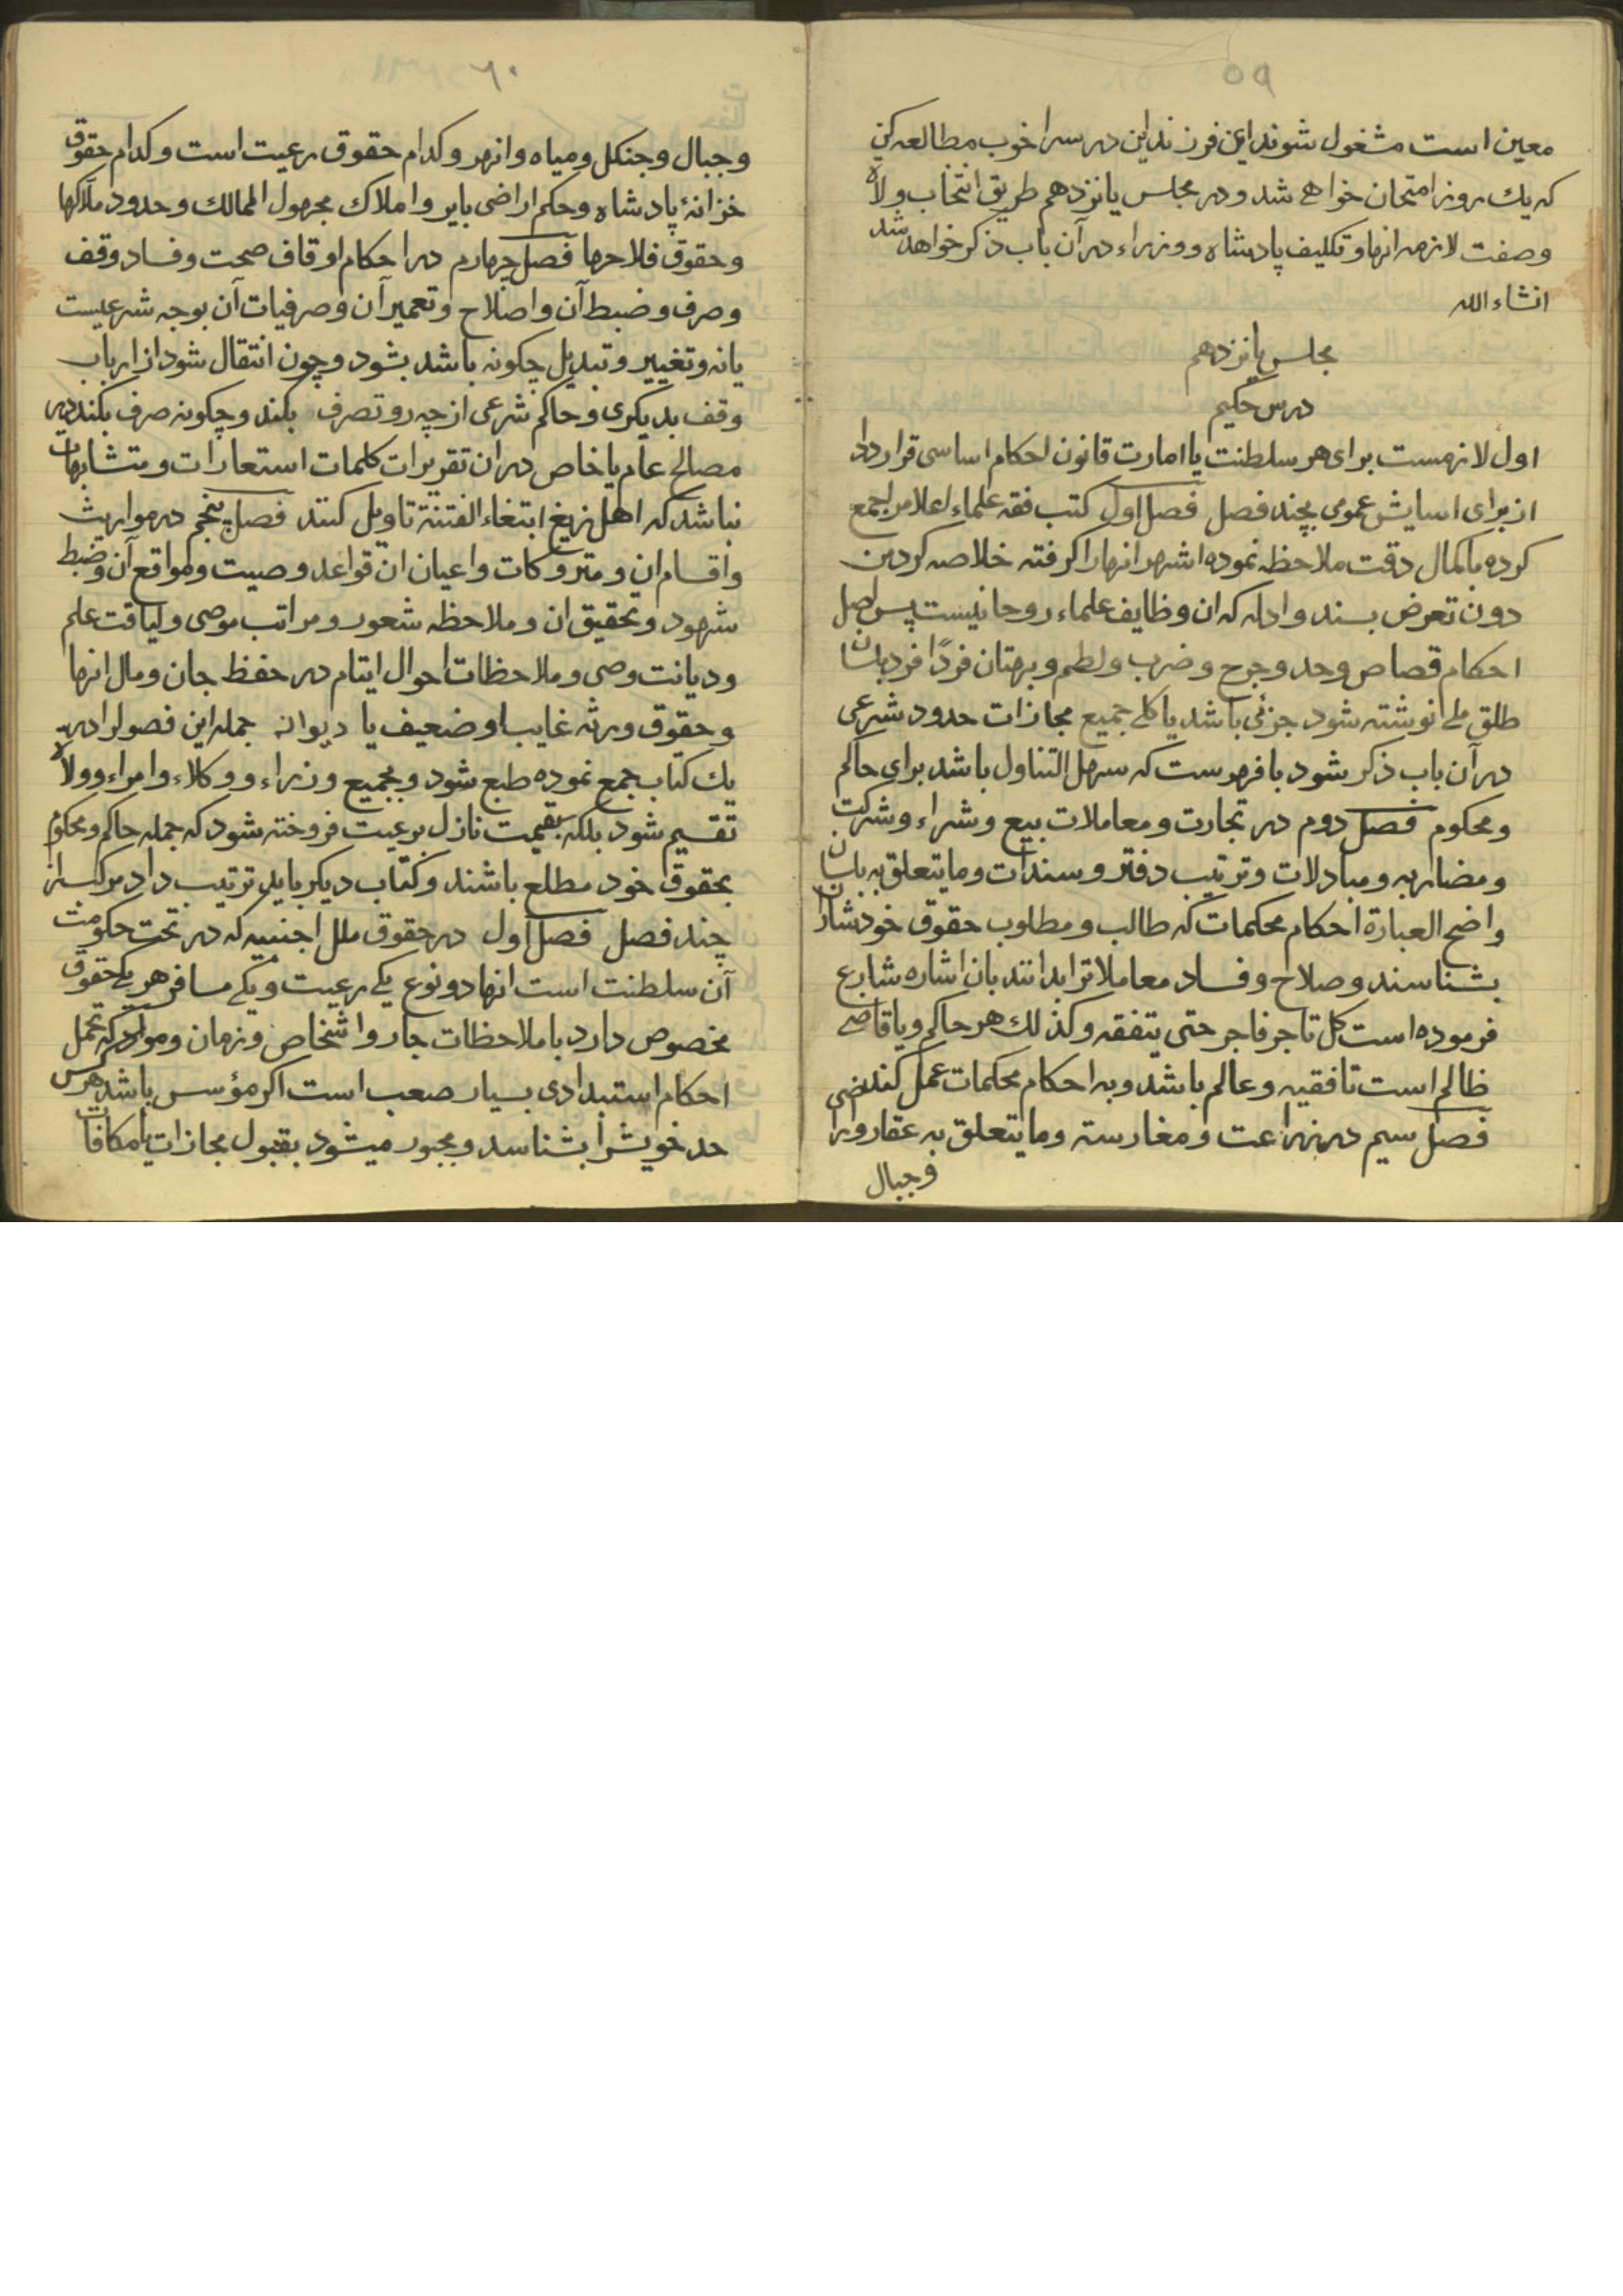 ۵۹
معین است مشغول شوند ای فرزند این درس را خوب مطالعه کن
که یك روز امتحان خواهے شد و در مجلس یانزدهم طریق انتخاب ولاة
وصفت لازمه انها و تکلیف پادشاه و وزراء در آن باب ذکر خواهد شد
انشاء الله
مجلس یانزدهم
درس حکیم
اول لازمست برای هر سلطنت یا امارت قانون احکام اساسی قرار داد
از برای اسایش عمومی بچند فصل فصل اول کتب فقه علماء اعلام را جمع
کرده با کمال دقت ملاحظه نموده اشهر انها را کرفته خلاصه کردن
دون تعرض بسند و ادله که ان وظایف علماء روحانیست پس اصل
احکام قصاص وحد وجرح وضرب ولطم و بهتان فردًا فرد بلسان
طلق ملے نوشته شود جزئی باشد یا کلے جمیع مجازات حدود شرعی
در آن باب ذکر شود با فهرست که سهل التناول باشد برای حاکم
ومحکوم فصل دوم در تجارت ومعاملات بیع وشراء وشرکت
ومضاربه ومبادلات وترتیب دفتر وسندات وما یتعلق به بلسان
واضح العبارة احکام محکمات که طالب ومطلوب حقوق خودشان را
بشناسند وصلاح وفساد معاملات را بدانند بان اشاره شارع
فرموده است کل تاجر فاجر حتی یتفقه وکذلك هر حاکم ویا قاضے
ظالم است تا فقیه وعالم باشد وبه احکام محکمات عمل کند
فصل سیم در زراعت ومغارسته وما یتعلق به عقار و اراضی
وجبال
۶۰
وجبال وجنکل ومیاه وانهر وکدام حقوق رعیت است وکدام حقوق
خزانهٔ پادشاه وحکم اراضی بایر واملاك مجهول الممالك وحدود ملاکها
وحقوق فلاحها فصل چهارم در احکام اوقاف صحت وفساد وقف
وصرف وضبط آن واصلاح وتعمیر آن وصرفیات آن بوجه شرعیست
یا نه وتغییر وتبدیل چکونه باشد بشود وچون انتقال شود از ارباب
وقف بدیکری وحاکم شرعی از چه رو تصرف بکند وچکونه صرف بکند در
مصالح عام یا خاص در ان تقریرات کلمات استعارات ومتشابهات
نباشد که اهل زیغ ابتغاء الفتنة تاویل کنند فصل پنجم در مواریث
واقسام ان ومتروکات واعیان ان قواعد وصیت ومواقع آن وضبط
شهود وتحقیق ان وملاحظه شعور ومراتب موصی ولیاقت علم
ودیانت وصی وملاحظات احوال ایتام در حفظ جان ومال انها
وحقوق ورثه غایب او ضعیف یا دیوانه جمله این فصول را در
یك کتاب جمع نموده طبع شود وبجمیع وزراء ووکلاء وامراء وولاة
تقسیم شود بلکه بقیمت نازل برعیت فروخته شود که جمله حاکم ومحکوم
بحقوق خود مطلع باشند وکتاب دیکر باید ترتیب داد مرکب از
چند فصل فصل اول در حقوق ملل اجنبیه که در تحت حکومت
آن سلطنت است انها دو نوع یکے رعیت ویکے مسافر هر یکے حقوق
مخصوص دارد با ملاحظات جار واشخاص وزمان وموارد که تحمل
احکام استبدادی بسیار صعب است اکر مؤسس باشد هر کس
حد خویش را بشناسد ومجبور میشود بقبول مجازات یا مکافات